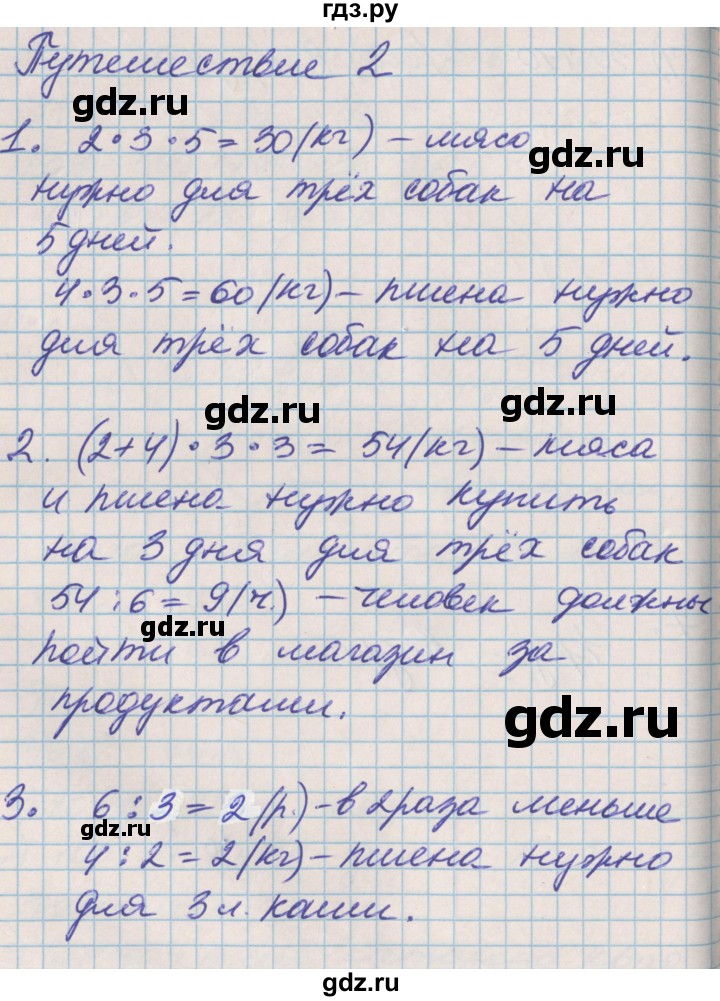 гдз.ру
Путешествие 2
gdz.ru
1. 2·3·5=30(кг) – мясо
gdz.ru
нужно для трёх собак на
5 дней.
gdz.ru
4·3·5=60(кг) – пшена нужно
для трёх собак на 5 дней.
gdz.ru
gdz.ru
2. (2+4)·3·3= 54(кг) – мяса
и пшена нужно купить
на 3 дня для трёх собак
54:6=9(ч.) – человек должны
gdz.ru
пойти в магазин за
продуктами.
gdz.ru
3. 6:3=2(р.) – в 2 раза меньше
gdz.ru
4:2=2(кг) – пшена нужно
для 3 л. каши.
gdz.ru
gdz.ru